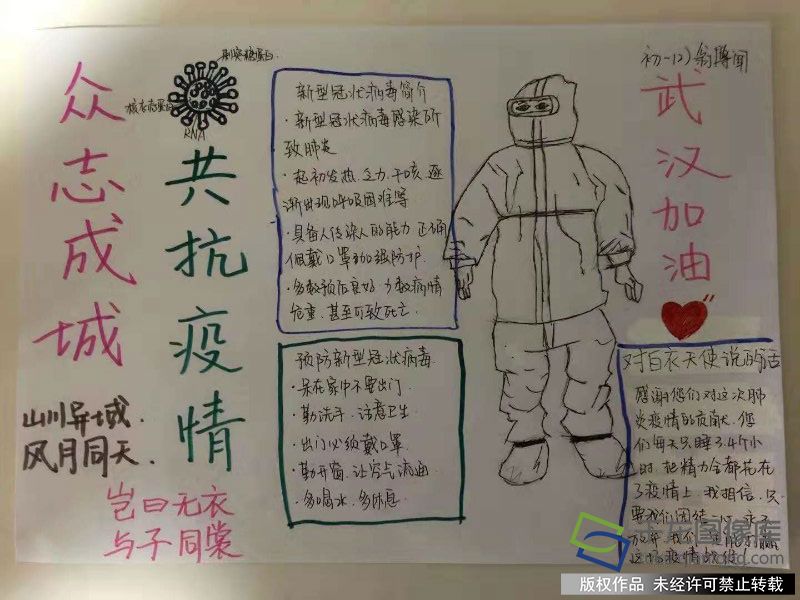 众志成城
共抗疫情
RNA
新型冠状病毒简介
·新型冠状病毒感染所
致肺炎
·起初发热、乏力、干咳、逐
渐出现呼吸困难等
·具备人传染人的能力 正确
佩戴口罩加强防护.
·多数预后良好 少数病情
危重.甚至可致死亡.
预防新型冠状病毒.
·呆在家中不要出门
·勤洗手.注意卫生
·出门必须戴口罩.
·勤开窗.让空气流通
·多喝水.多休息
山川异域.
风月同天.
岂曰无衣
与子同裳
初一(2)
武汉加油
对白衣天使说的话
感谢您们对这次肺
炎疫情的贡献.您
们每天只睡了4个小
时.把精力全都花在
了疫情上.我相信.只
要我们团结
这场疫情
图像库
版权作品 未经许可禁止转载